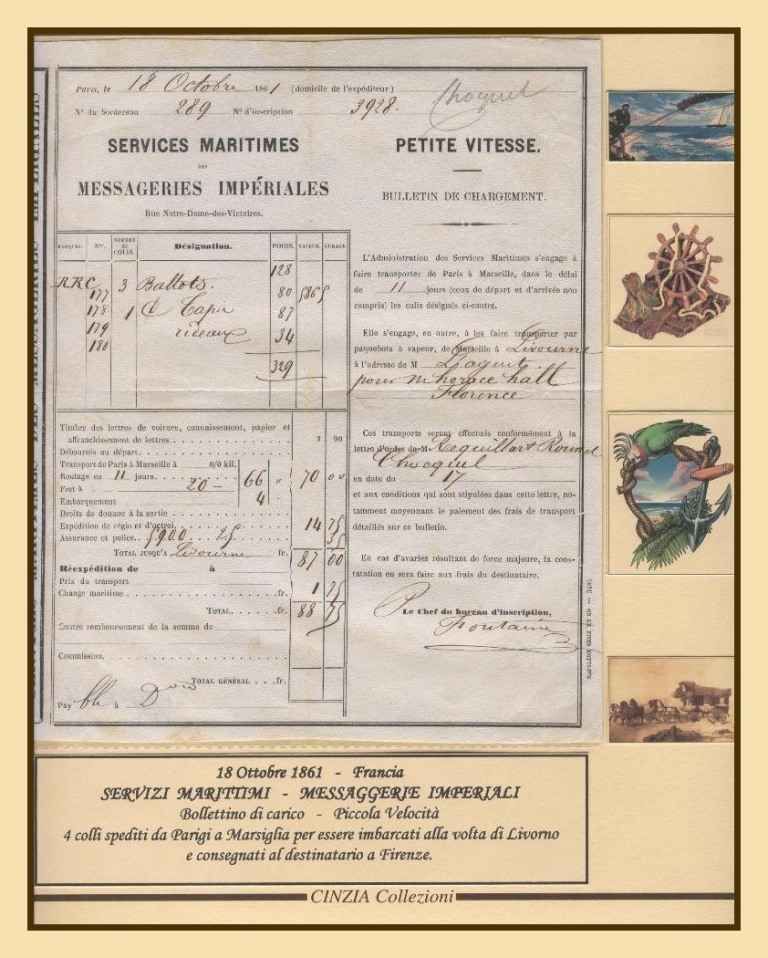 Paris, le 18 Octobre 1861 (domicile de l'expéditeur)
N° du Bordereau 289 N° d'inscription 3928.
Choquel
SERVICES MARITIMES
DES
MESSAGERIES IMPÉRIALES
Rue Notre-Dame-des-Victoires.
MARQUES. Nos. NOMBRE DE COLIS. Désignation. POIDS. VALEUR.
128
RRC 3 Ballots.
177 80 5865
178 1 Tapis 87
179 rideaux 34
180
329
Timbre des lettres de voiture, connaissement, papier et
affranchissement de lettres 1 90
Déboursés au départ
Transport de Paris à Marseille à 0/0 kil.
Roulage en 11 jours. 66 70
Fret à 20 — 4
Embarquement
Droits de douane à la sortie
Expédition de régie et d'octroi 14 75
Assurance et police 5900 25 35
TOTAL JUSQU'A Livourne fr. 87 00
Réexpédition de à
Prix du transport
Change maritime fr. 1 75
TOTAL fr. 88 75
Contre remboursement de la somme de
Commission
TOTAL GÉNÉRAL fr.
Pay à
PETITE VITESSE.
BULLETIN DE CHARGEMENT.
L'Administration des Services Maritimes s'engage à
faire transporter de Paris à Marseille, dans le délai
de 11 jours (ceux de départ et d'arrivée non
compris) les colis désignés ci-contre.
Elle s'engage, en outre, à les faire transporter par
paquebots à vapeur, de Marseille à Livourne
à l'adresse de M
pour Mr horace hall
Florence
Ces transports seront effectués conformément à la
lettre d'ordre de M. Requillart Roussel
Chocquel
en date du 17
et aux conditions qui sont stipulées dans cette lettre, no-
tamment moyennant le paiement des frais de transport
détaillés sur ce bulletin.
En cas d'avaries résultant de force majeure, la cons-
tatation en sera faite aux frais du destinataire.
Le Chef du bureau d'inscription,
Fontaine
18 Ottobre 1861 - Francia
SERVIZI MARITTIMI - MESSAGGERIE IMPERIALI
Bollettino di carico - Piccola Velocità
4 colli spediti da Parigi a Marsiglia per essere imbarcati alla volta di Livorno
e consegnati al destinatario a Firenze.
CINZIA Collezioni